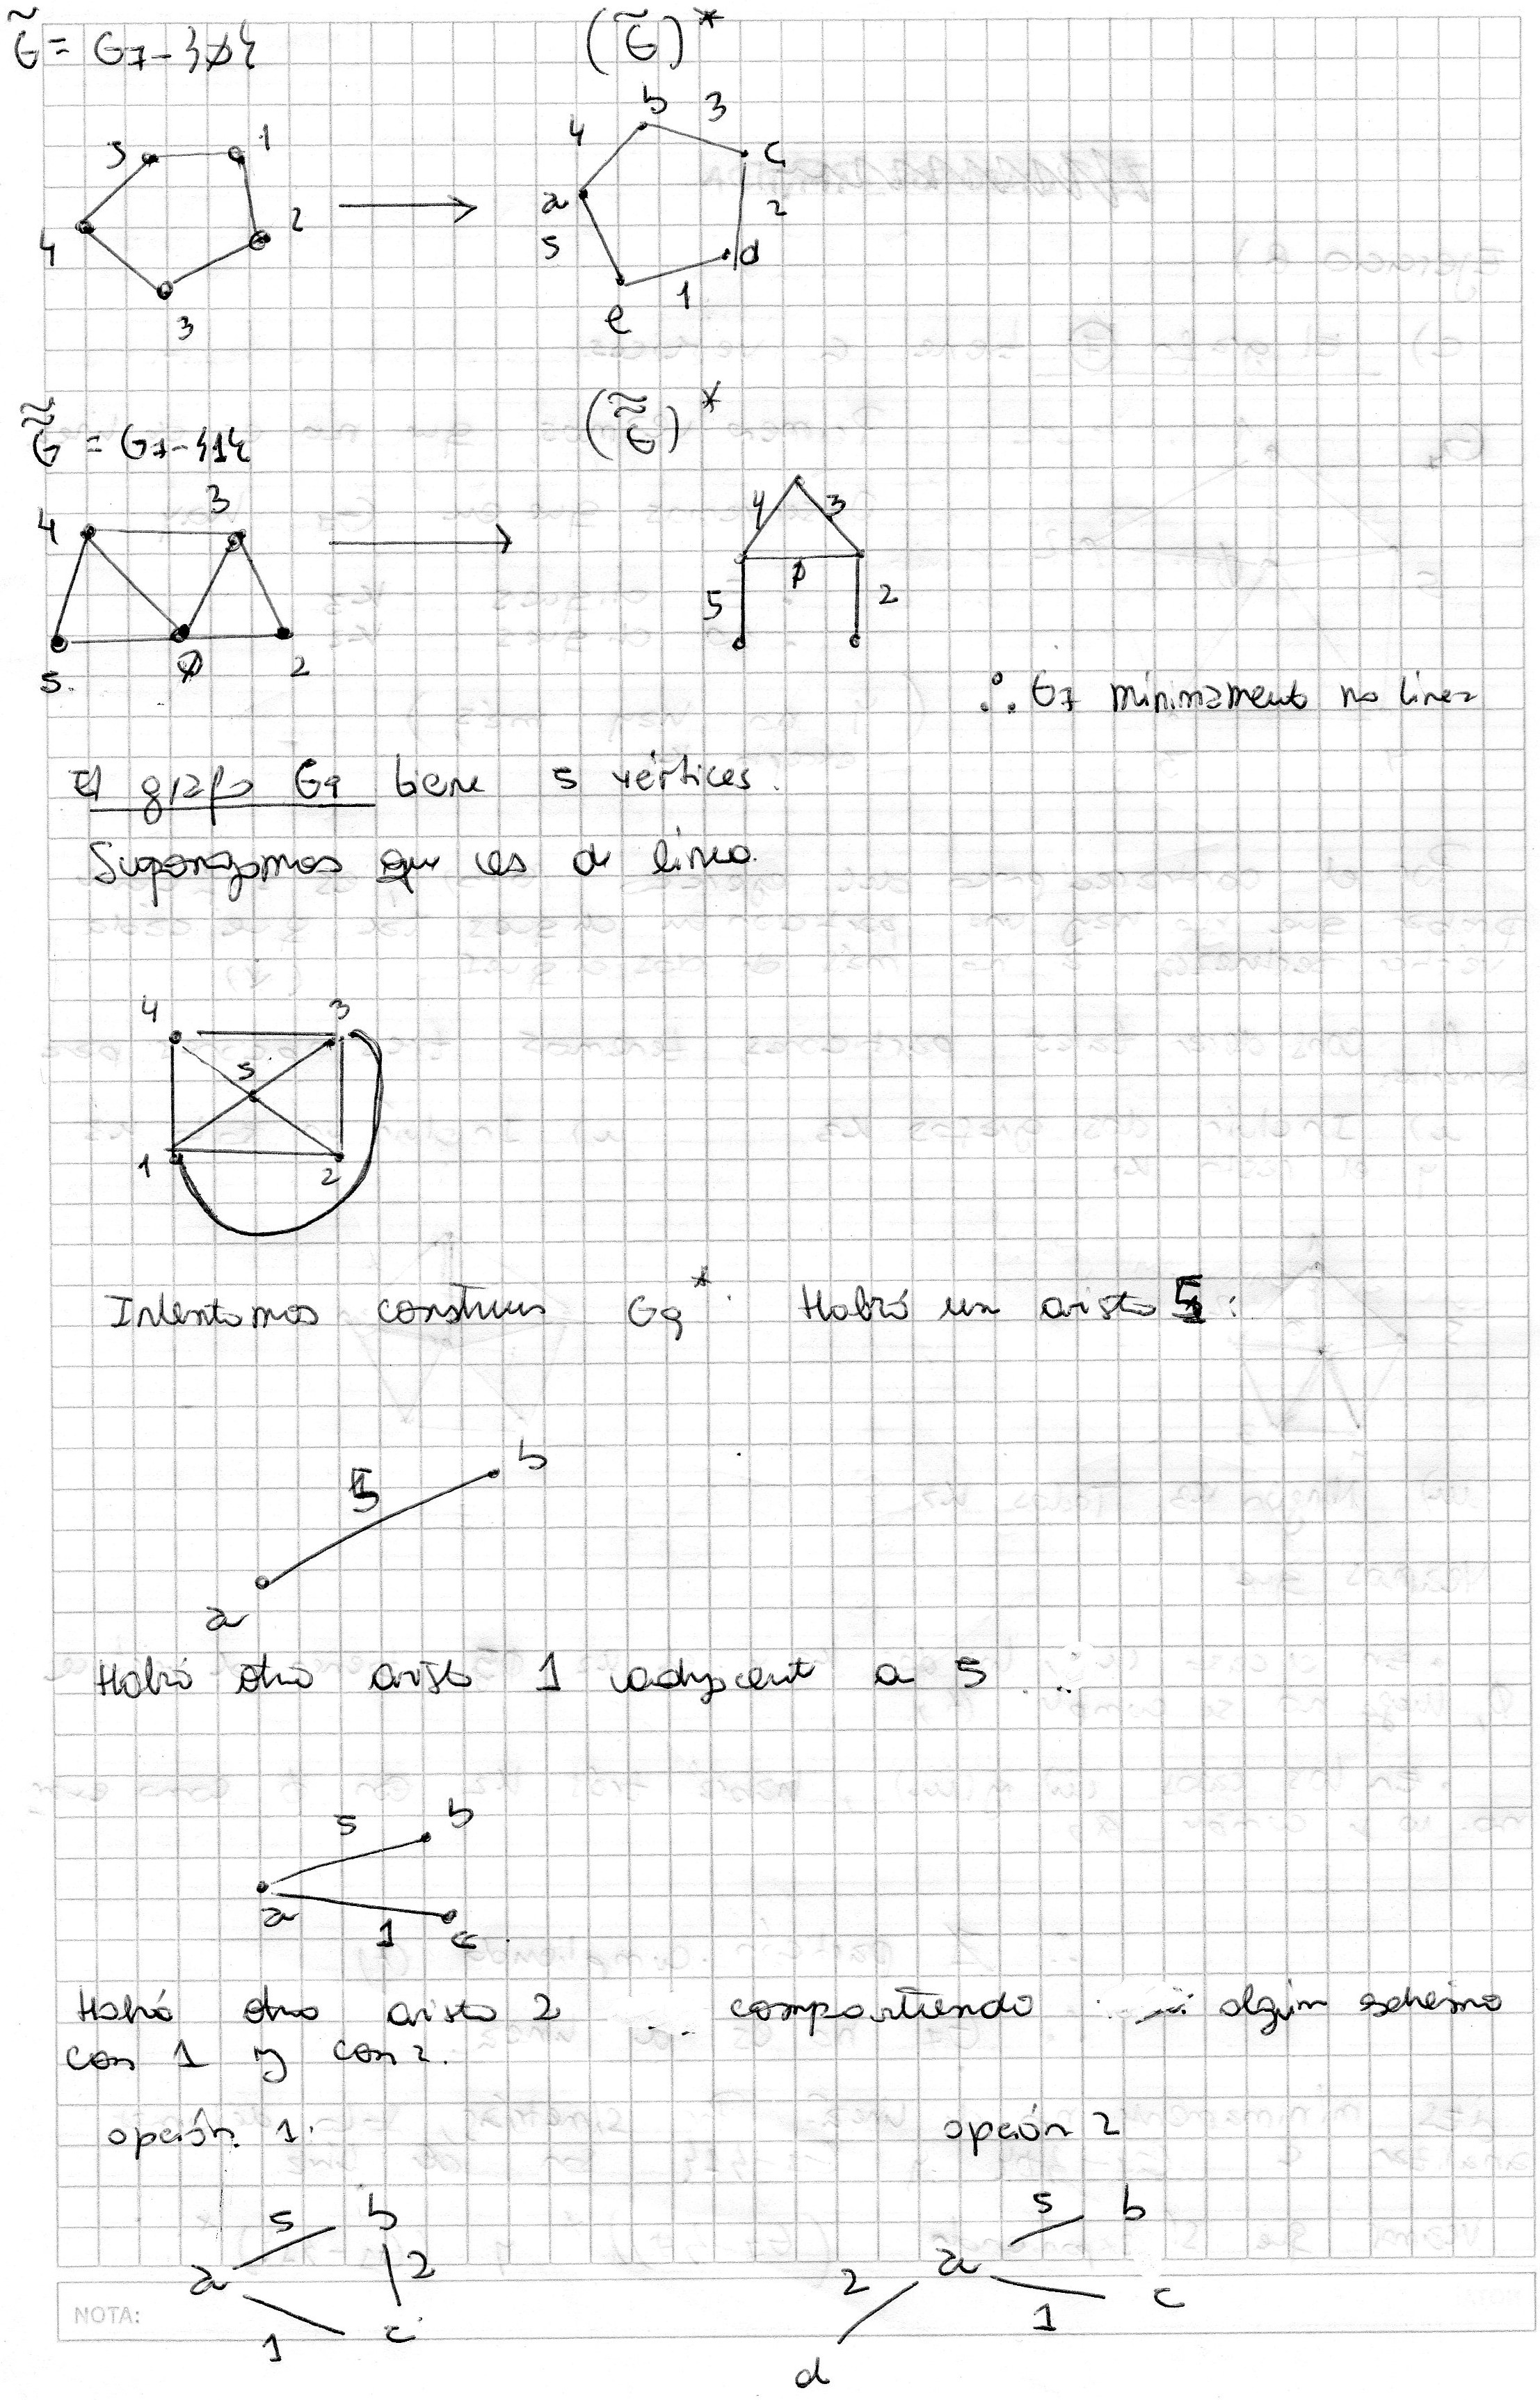 G̃ = G7-{∅}
(G̃)*
5 1 2 3 4
b 3 c 2 d 1 e 5 a 4
G̃̃ = G7-{1}
(G̃̃)*
4 3 5 ∅ 2
4 3 ∅ 5 2
∴ G7 minimament no linea
El grafo G9 tiene 5 vértices.
Supongamos que es de linea.
4 3
5
1 2
Intentamos construir G9*. Habrá una arista 5:
5 b
a
Habrá otra arista 1 adyacent a 5
5 b
a
1 c
Habrá otra arista 2 compartiendo algún extremo
con 1 y con 2.
opción 1. opción 2
5 b 5 b
a 2 2 a
1 c 1 c
d
NOTA: